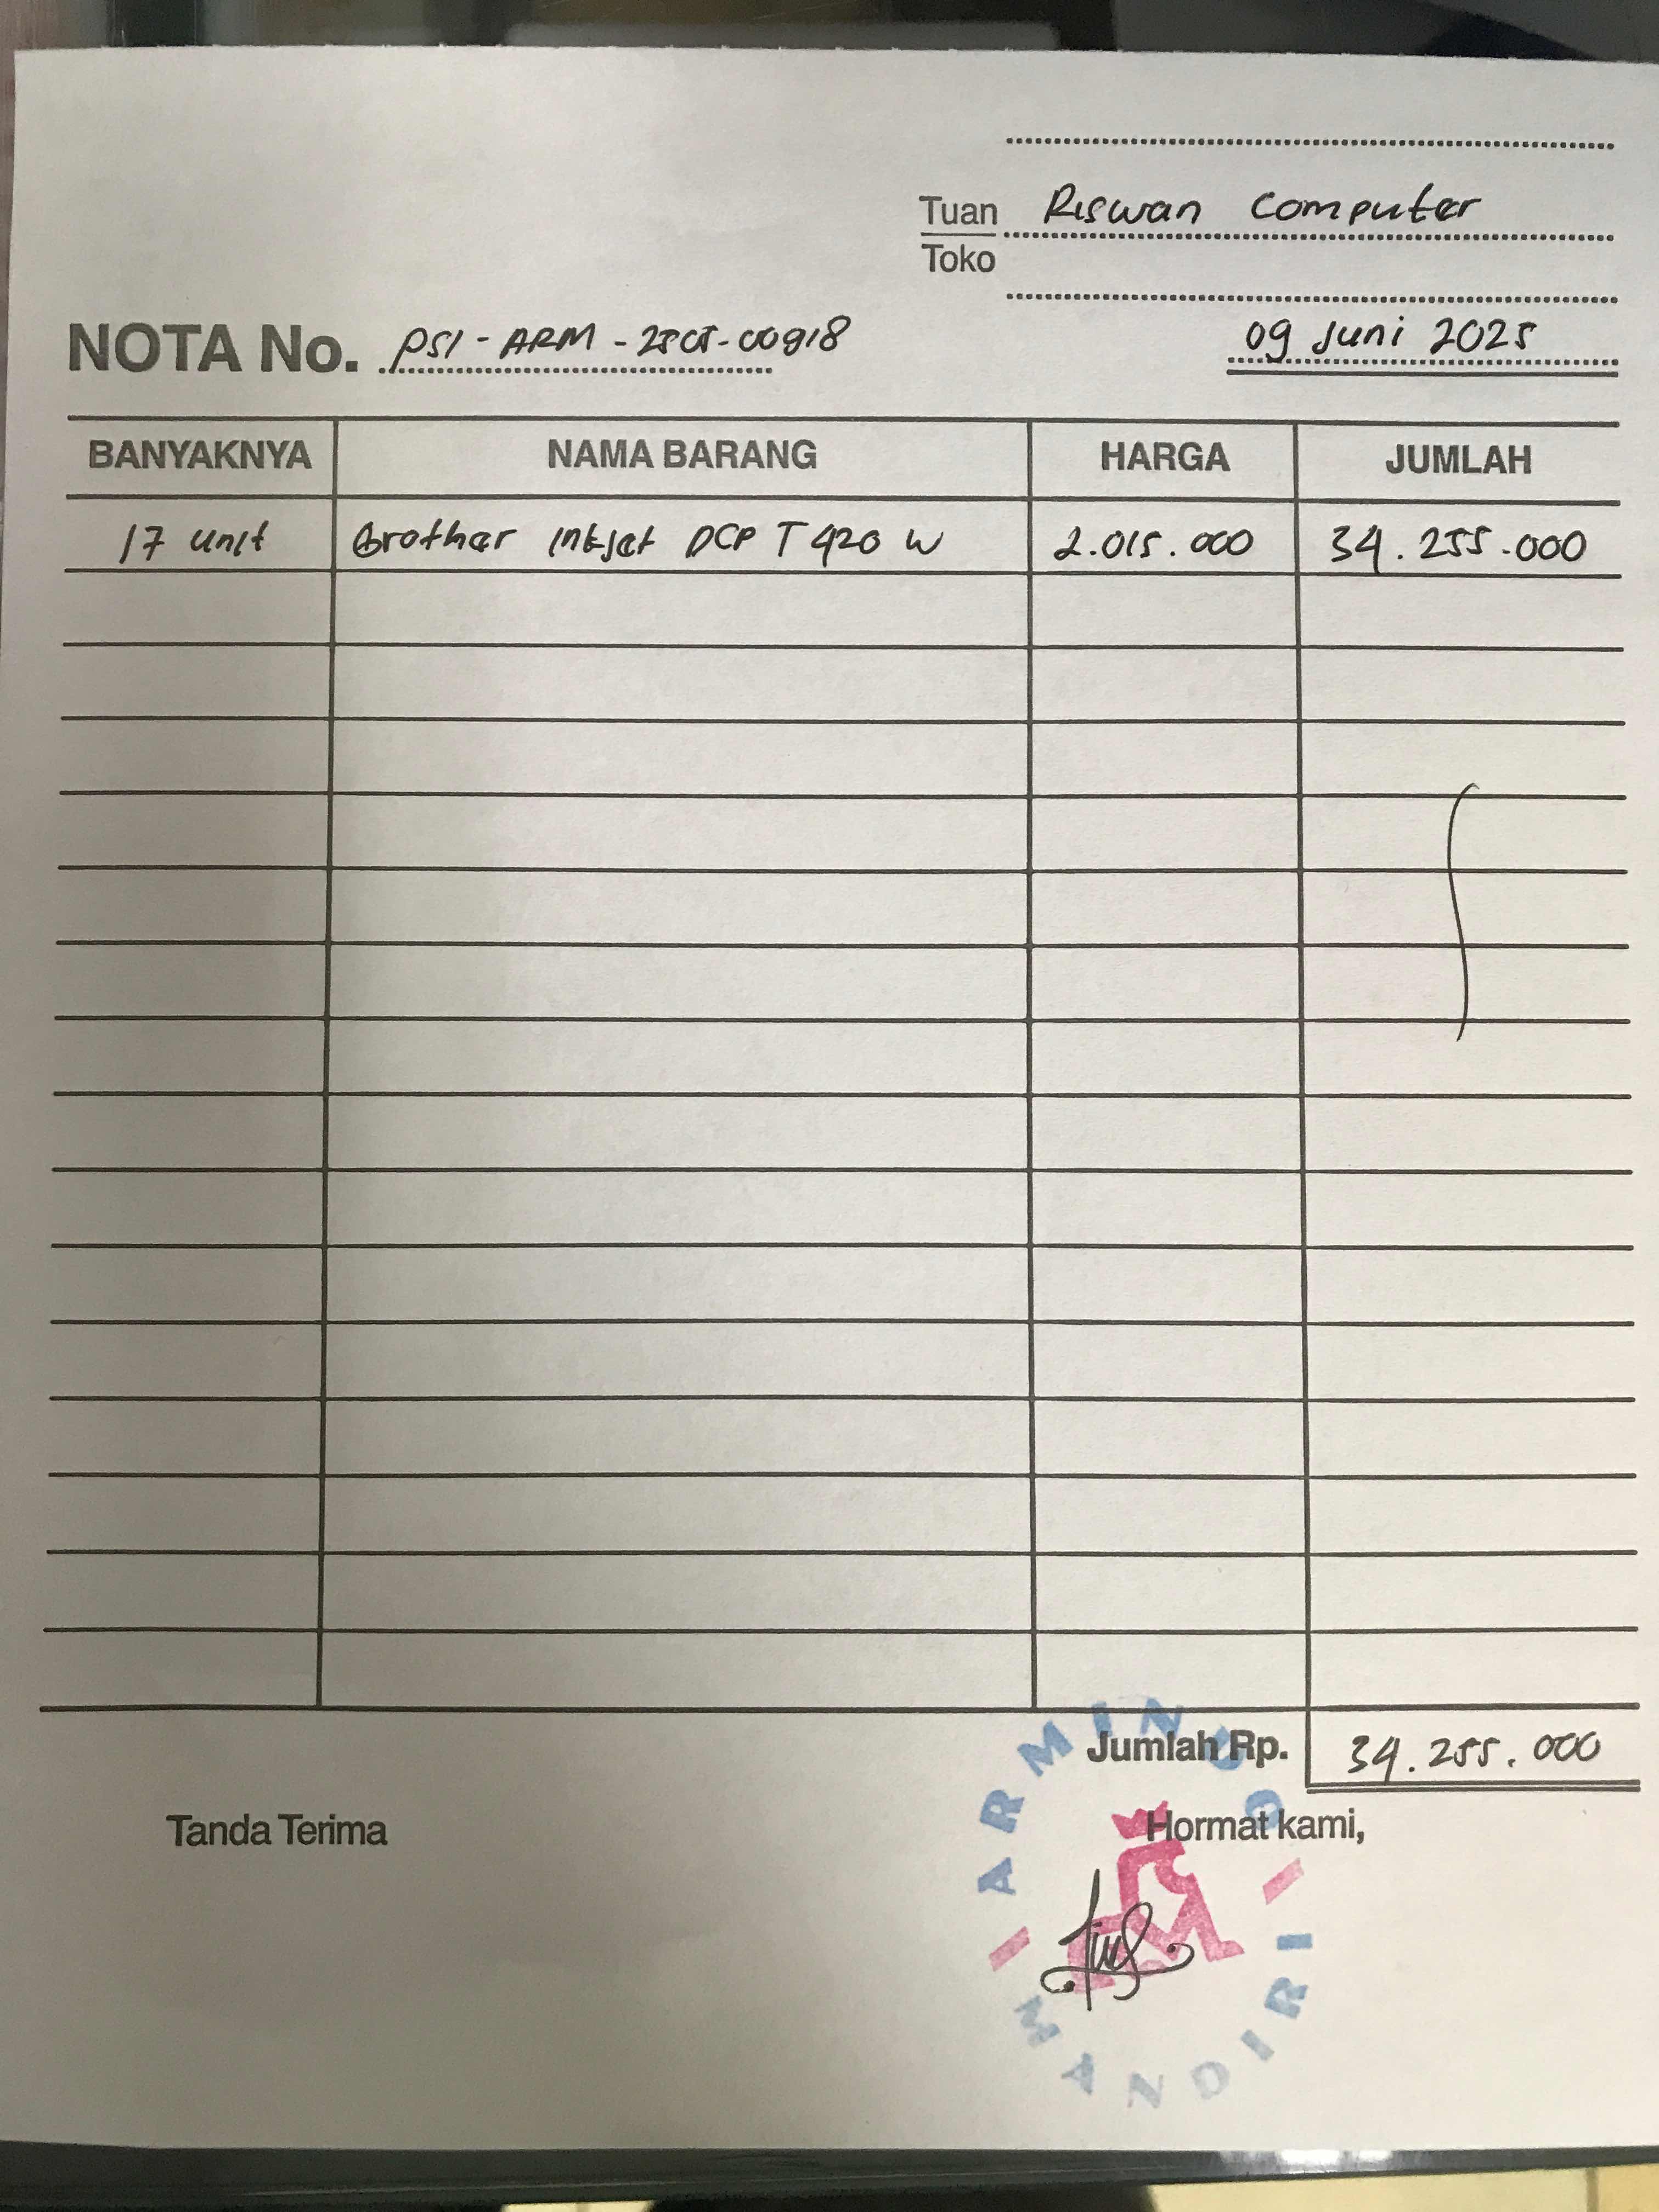 Tuan Riswan Computer
Toko
NOTA No. PSI-ARM-2505-00918 09 Juni 2025
BANYAKNYA NAMA BARANG HARGA JUMLAH
17 unit Brother Inkjet DCP T420 W 2.015.000 34.255.000
Jumlah Rp. 34.255.000
Tanda Terima Hormat kami,
ARMINDO
MANDIRI